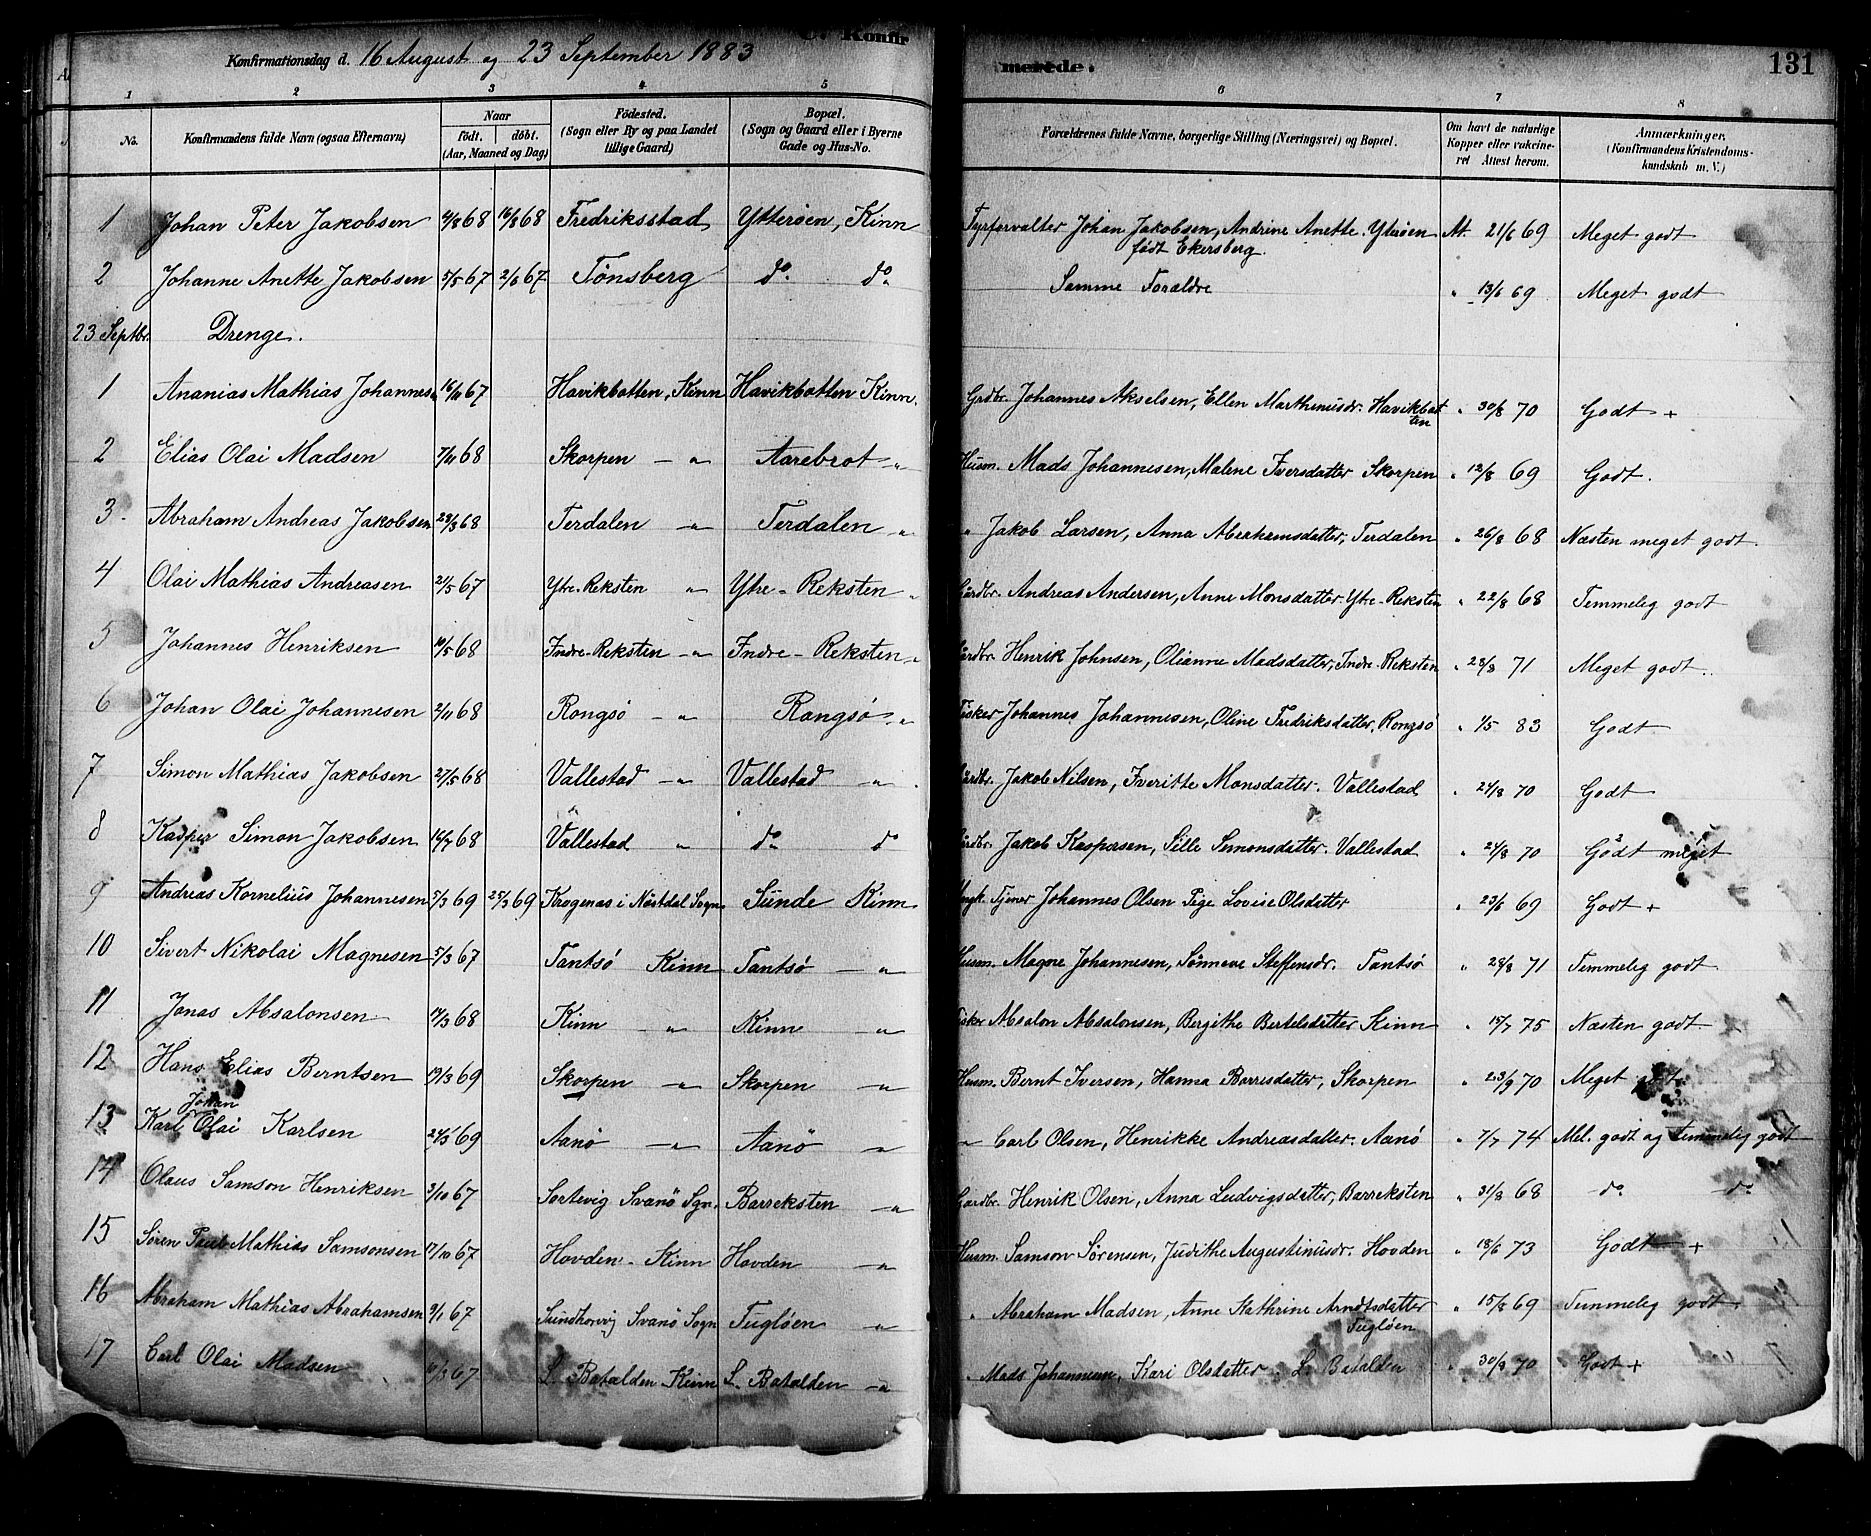 C. Konfir
merede.
131
Konfirmationsdag d. 16 August og 23 September 1883
1 2 3 4 5 6 7 8
No. | Konfirmandens fulde Navn (ogsaa Efternavn) | Naar født. døbt. (Aar, Maaned og Dag) | Fødested. (Sogn eller By og paa Landet tillige Gaard) | Bopæl. (Sogn og Gaard eller i Byerne Gade og Hus-No. | Forældrenes fulde Navne, borgerlige Stilling (Næringsvei) og Bopæl. | Om havt de naturlige Kopper eller vakcineret Attest herom. | Anmærkninger. (Konfirmandens Kristendomskundskab m. V.)
1 Johan Peter Jakobsen 4/8 68 16/8 68 Fredriksstad Ytterøen, Kinn Fyrforvalter Johan Jakobsen, Andrine Anette Yterøen At. 21/6 69 Meget godt
født Ekersberg.
2 Johanne Anette Jakobsen 5/5 67 2/6 67 Tønsberg do. do. Samme Forældre " 13/6 69 Meget godt
23 Septbr. Drenge.
1 Ananias Mathias Johannes 16/11 67 Havikbotten, Kinn Havikbotten Kinn. Grdbr. Johannes Akselsen, Ellen Marthinusdr. Havikbotten " 30/8 70 Godt +
2 Elias Olai Madsen 7/11 68 Skorpen — " Aarebrot " Husm. Mads Johannesen, Malene Iversdatter Skorpen " 12/8 69 Godt.
3. Abraham Andreas Jakobsen 28/3 68 Terdalen — " Terdalen — " " Jakob Larsen, Anna Abrahamsdatter, Terdalen " 26/8 68 Næsten meget godt.
4 Olai Mathias Andreasen 21/5 67 Ytre-Reksten " Ytre-Reksten " Gardbr. Andreas Andersen, Anne Monsdatter. Ytre-Reksten " 22/8 68 Temmelig godt
5 Johannes Henriksen 10/5 68 Indre-Reksten — " Indre-Reksten " Gardbr. Henrik Johnsen, Olianne Madsdatter, Indre-Reksten " 28/8 71 Meget godt.
6 Johan Olai Johannesen 2/11 68 Rongsö — " Rongsö " Fisker Johannes Johannesen, Oline Fredriksdatter, Rongsö " 1/5 83 Godt
7 Simon Mathias Jakobsen 27/5 68 Vallestad — " Vallestad — " Gardbr. Jakob Nilsen, Iveritte Monsdatter. Vallestad " 24/8 70 Godt
8 Kasper Simon Jakobsen 16/7 68 Vallestad " do. do Gardbr. Jakob Kaspersen, Sille Simonsdatter. Vallestad " 24/8 70 Godt meget
9 Andreas Kornelius Johannesen 5/3 69 25/3 69 Krogenæs i Nöstdal Sogn. Sunde Kinn Ungk. Tjener Johannes Olsen Pige Lovise Olsdatter " 23/6 69 Godt +
10 Sivert Nikolai Magnesen 5/3 67 Tantsö Kinn Tantsö — " Husm. Magne Johannesen, Sönneve Steffensdr. Tantsö " 28/8 71 Temmelig godt
11 Jonas Absalonsen 14/3 68 Kinn " Kinn " Fisker Absalon Absalonsen, Bergithe Bertelsdatter Kinn " 15/7 75 Næsten godt
12 Hans Elias Berntsen 19/3 69 Skorpen " Skorpen — " Husm. Bernt Iversen, Hanna Børresdatter, Skorpen " 23/9 70 Meget godt
Johan
13 Karl Olai Karlsen 24/5 69 Aanö — " Aanö " " Carl Olsen, Henrikke Andreasdatter. Aanö " 7/7 74 Mel. godt og temmelig godt
14 Olaus Samson Henriksen 3/10 67 Sortevig Svanö Sgn. Barreksten " Gardbr. Henrik Olsen, Anna Ludvigsdatter, Barreksten " 31/8 68 do do
15 Søren Paul Mathias Samsonsen 17/10 67 Hovden Kinn Hovden — " Husm. Samson Sørensen, Judithe Augustinusdr. Hovden " 18/6 73 Godt +
16 Abraham Mathias Abrahamsen 9/1 67 Svanö Sogn Fugløen " " Abraham Madsen, Anne Kathrine Arndtsdatter " 15/8 69 Temmelig godt
Fugløen
17 Carl Olai Madsen /3 67 L. Batalden Kinn L. Batalden — " Mads Johannesen, Kari Olsdatter L. Batalden " 30/8 70 Godt +